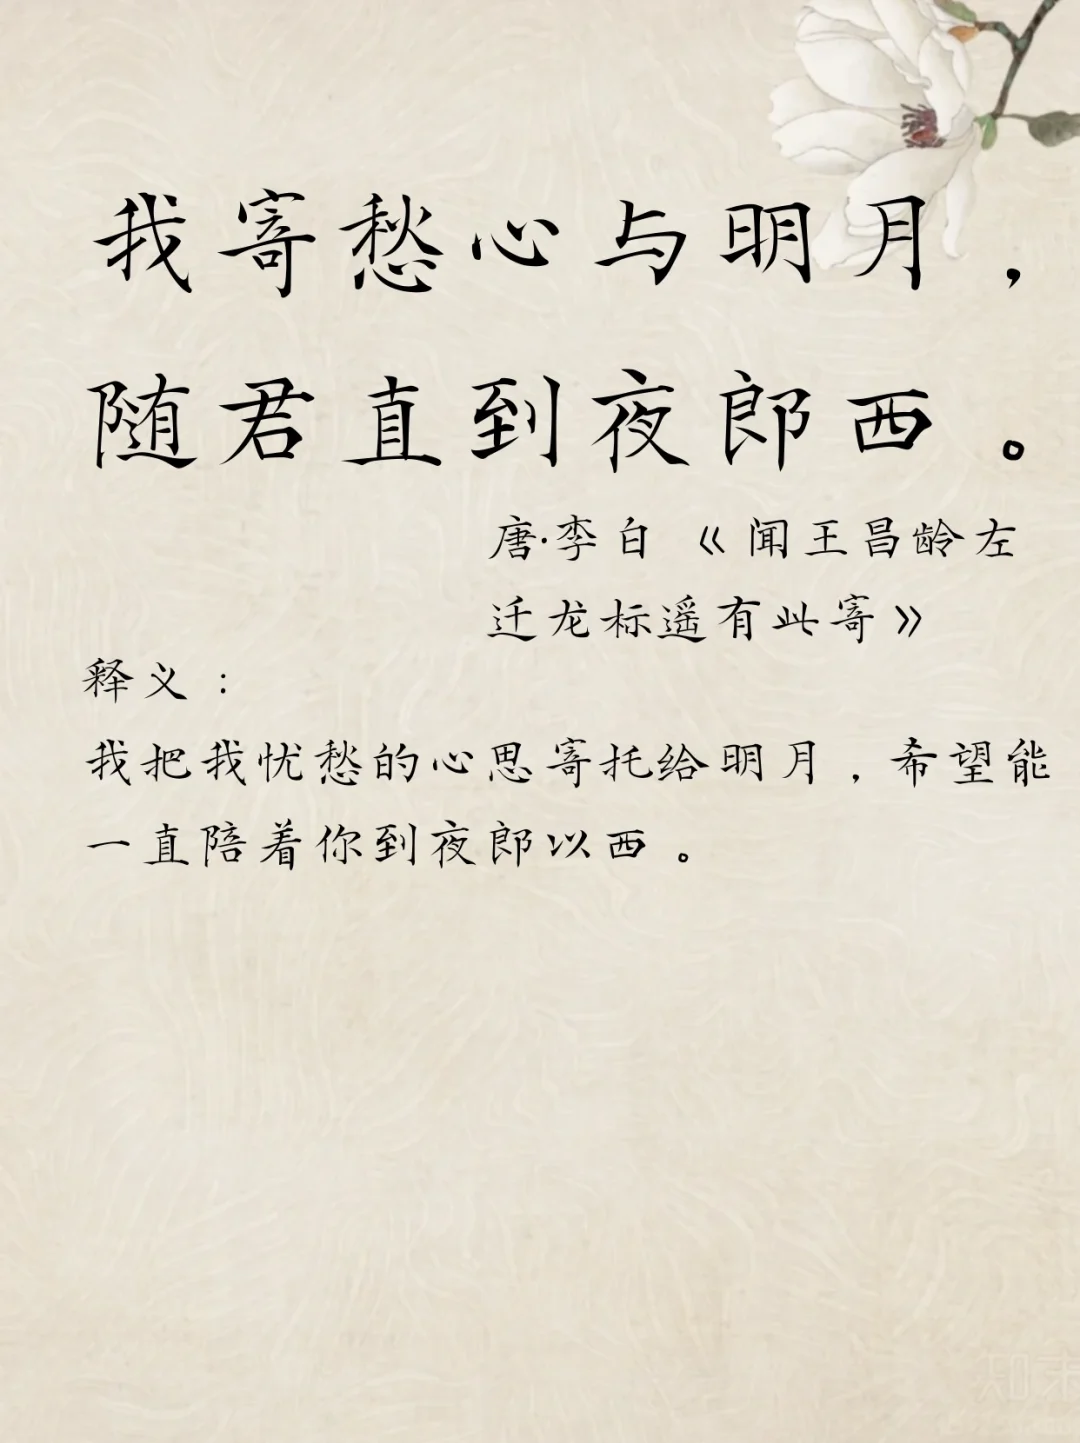 我寄愁心与明月，
随君直到夜郎西。
唐·李白《闻王昌龄左
迁龙标遥有此寄》
释义：
我把我忧愁的心思寄托给明月，希望能
一直陪着你到夜郎以西。